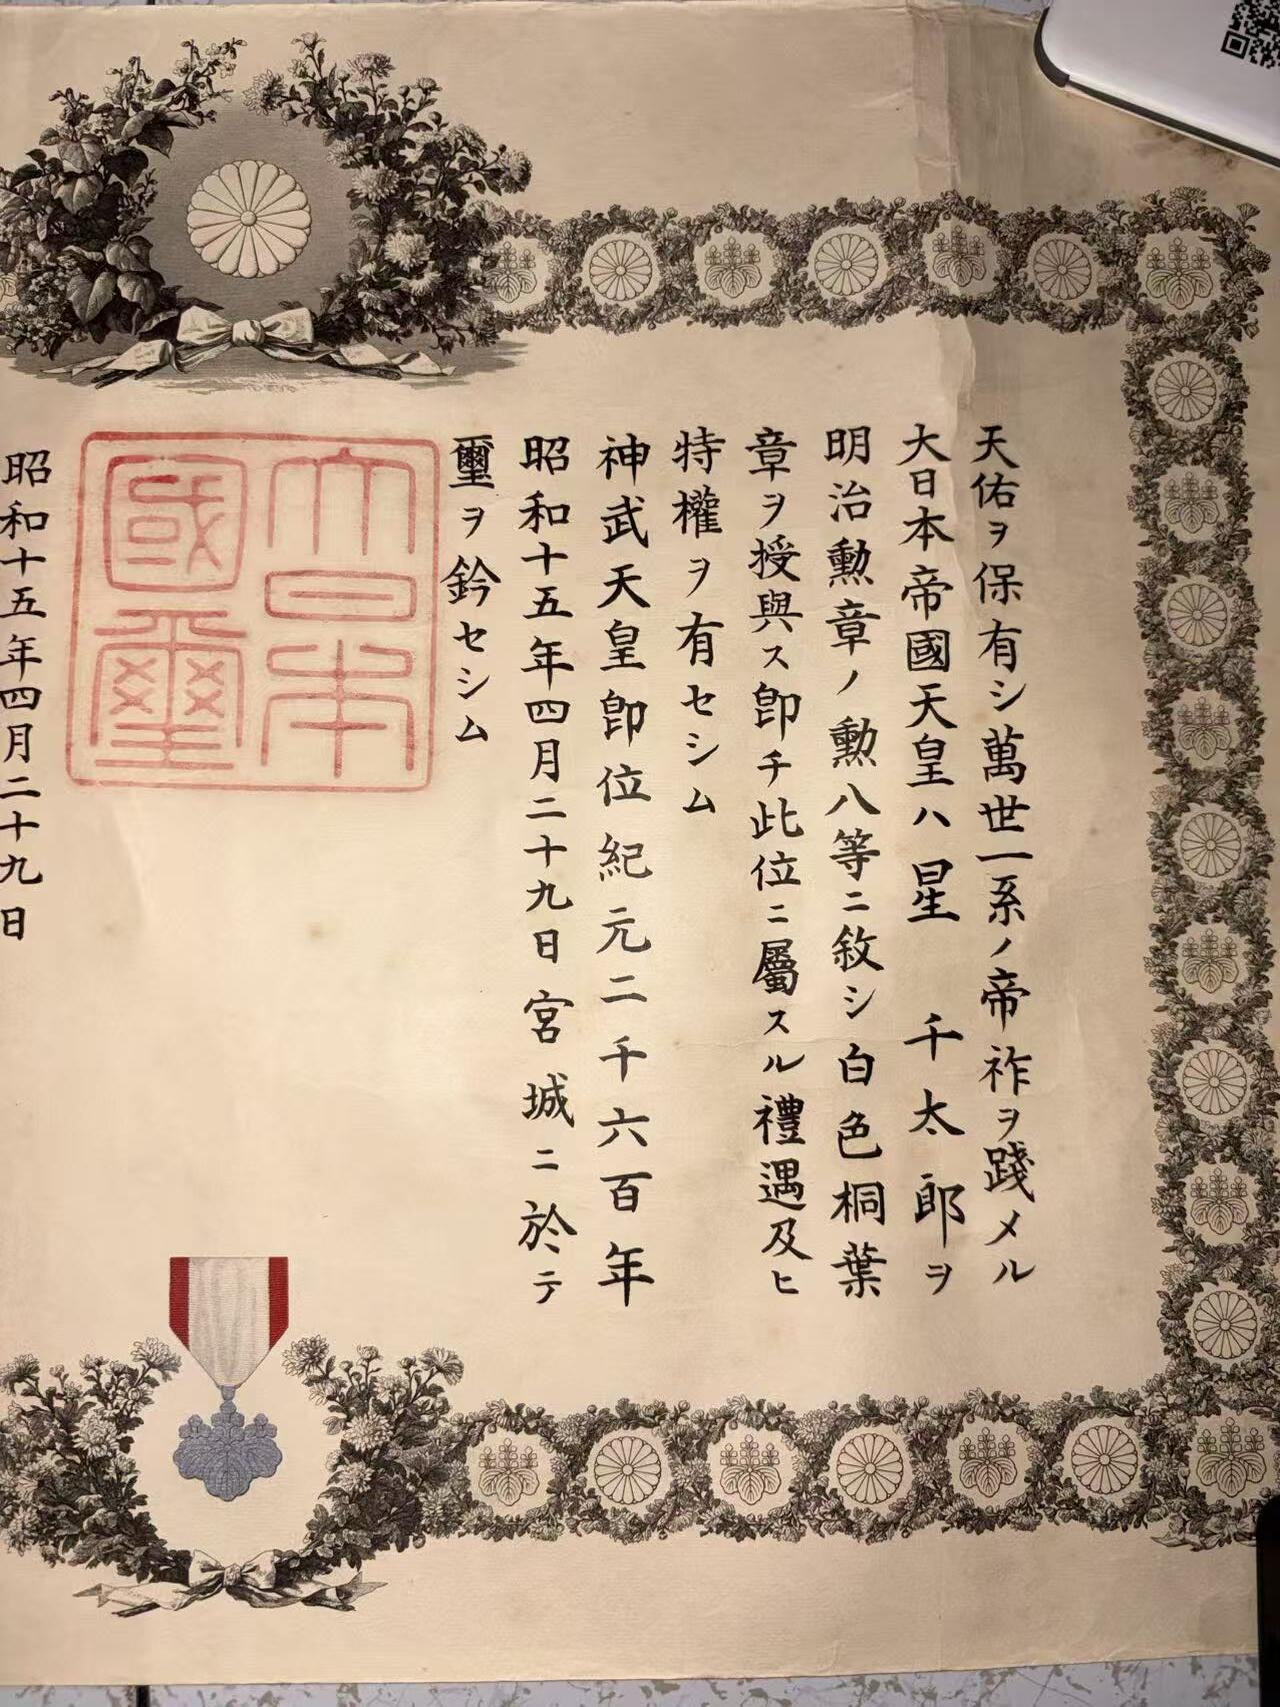 天佑ヲ保有シ萬世一系ノ帝祚ヲ踐メル
大日本帝國天皇ハ星 千太郎ヲ
明治勲章ノ勲八等ニ敘シ白色桐葉
章ヲ授與ス卽チ此位ニ屬スル禮遇及ヒ
特權ヲ有セシム
神武天皇卽位紀元二千六百年
昭和十五年四月二十九日宮城ニ於テ
璽ヲ鈐セシム
大日本
國璽
昭和十五年四月二十九日